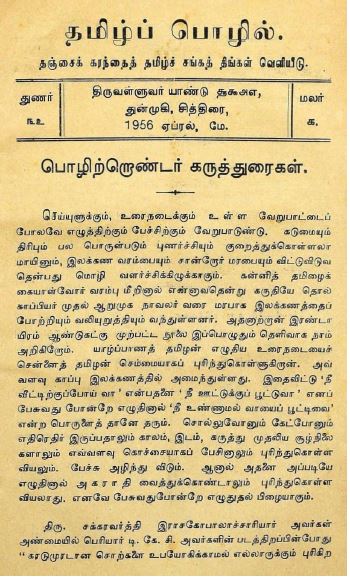 தமிழ்ப் பொழில்.
தஞ்சைக் கரந்தைத் தமிழ்ச் சங்கத் திங்கள் வெளியீடு.
துணர்
௩௨
திருவள்ளுவர் யாண்டு ௧௯௮௭,
துன்முகி, சித்திரை,
1956 ஏப்ரல், மே.
மலர்
௧.
பொழிற்றொண்டர் கருத்துரைகள்.
செய்யுளுக்கும், உரைநடைக்கும் உள்ள வேறுபாட்டைப்
போலவே எழுத்திற்கும் பேச்சிற்கும் வேறுபாடுண்டு. கடுமையும்
திரிபும் பல பொருள்படும் புணர்ச்சியும் குறைத்துக்கொள்ளலா
மாயினும், இலக்கண வரம்பையும் சான்றோர் மரபையும் விட்டுவிடுவ
தென்பது மொழி வளர்ச்சிக்கிழுக்காகும். கன்னித் தமிழைக்
கையாள்வோர் வரம்பு மீறினால் என்னாவதென்று கருதியே தொல்
காப்பியர் முதல் ஆறுமுக நாவலர் வரை மரபாக இலக்கணத்தைப்
போற்றியும் வலியுறுத்தியும் வந்துள்ளனர். அதனாற்றான் இரண்டா
யிரம் ஆண்டுகட்கு முற்பட்ட நூலை இப்பொழுதும் தெளிவாக நாம்
அறிகிறோம். யாழ்ப்பாணத் தமிழன் எழுதிய உரைநடையைச்
சென்னைத் தமிழன் செம்மையாகப் புரிந்துகொள்ளுகிறான். அவ்
வளவு காப்பு இலக்கணத்தில் அமைந்துள்ளது. இதைவிட்டு ' நீ
வீட்டிற்குப்போய் வா ' என்பதனை ' நீ ஊட்டுக்குப் பூட்டுவா ' எனப்
பேசுவது போன்றே எழுதினால் ' நீ உண்ணாமல் வாயைப் பூட்டிவை '
என்ற பொருளைத் தானே தரும். சொல்லுவோனும் கேட்போனும்
எதிரெதிர் இருப்பதாலும் காலம், இடம், கருத்து முதலிய சூழ்நிலை
களாலும் எவ்வளவு கொச்சையாகப் பேசினாலும் புரிந்துகொள்ள
வியலும். பேச்சு அழிந்து விடும். ஆனால் அதனை அப்படியே
எழுதினால் அகராதி வைத்துக்கொண்டாலும் புரிந்துகொள்ள
வியலாது. எனவே பேசுவதுபோன்றே எழுதுதல் பிழையாகும்.
திரு. சக்கரவர்த்தி இராசகோபாலாச்சாரியார் அவர்கள்
அண்மையில் பெரியார் டி. கே. சி. அவர்களின் படத்திறப்பின்போது
" கரடுமுரடான சொற்களை உபயோகிக்காமல் எல்லாருக்கும் புரிகிற